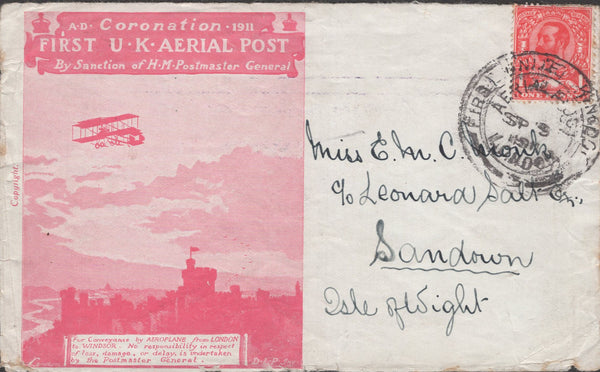 A·D· Coronation ·1911
FIRST U·K·AERIAL POST
By Sanction of H·M·Postmaster General
Copyright.
For Conveyance by AEROPLANE from LONDON
to WINDSOR. No responsibility in respect
of loss, damage, or delay, is undertaken
by the Postmaster General.
FIRST UNITED KINGDOM
AERIAL POST
SP 9
LONDON
Miss E. M. C. Monk
c/o Leonard Salt
Sandown
Isle of Wight